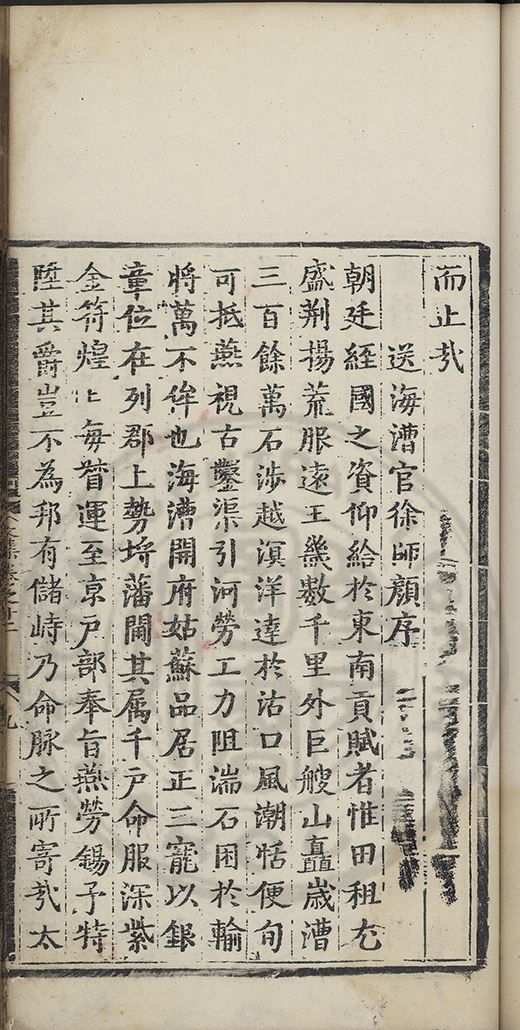 而止㢤
送海漕官徐師顏序
朝廷經國之資仰給於東南貢賦者惟田租尤
盛荆揚荒服遠王畿數千里外巨艘山矗歲漕
三百餘萬石涉越溟洋達於沽口風潮恬便旬
可抵燕視古鑿渠引河勞工力阻湍石困於輸
將萬不侔也海漕開府姑蘇品居正三寵以銀
章位在列郡上勢埒藩閫其属千戸命服深紫
金符煌〻每督運至京戸部奉旨燕勞錫予特
陞其爵豈不為邦有儲峙乃命脉之所寄㢤太